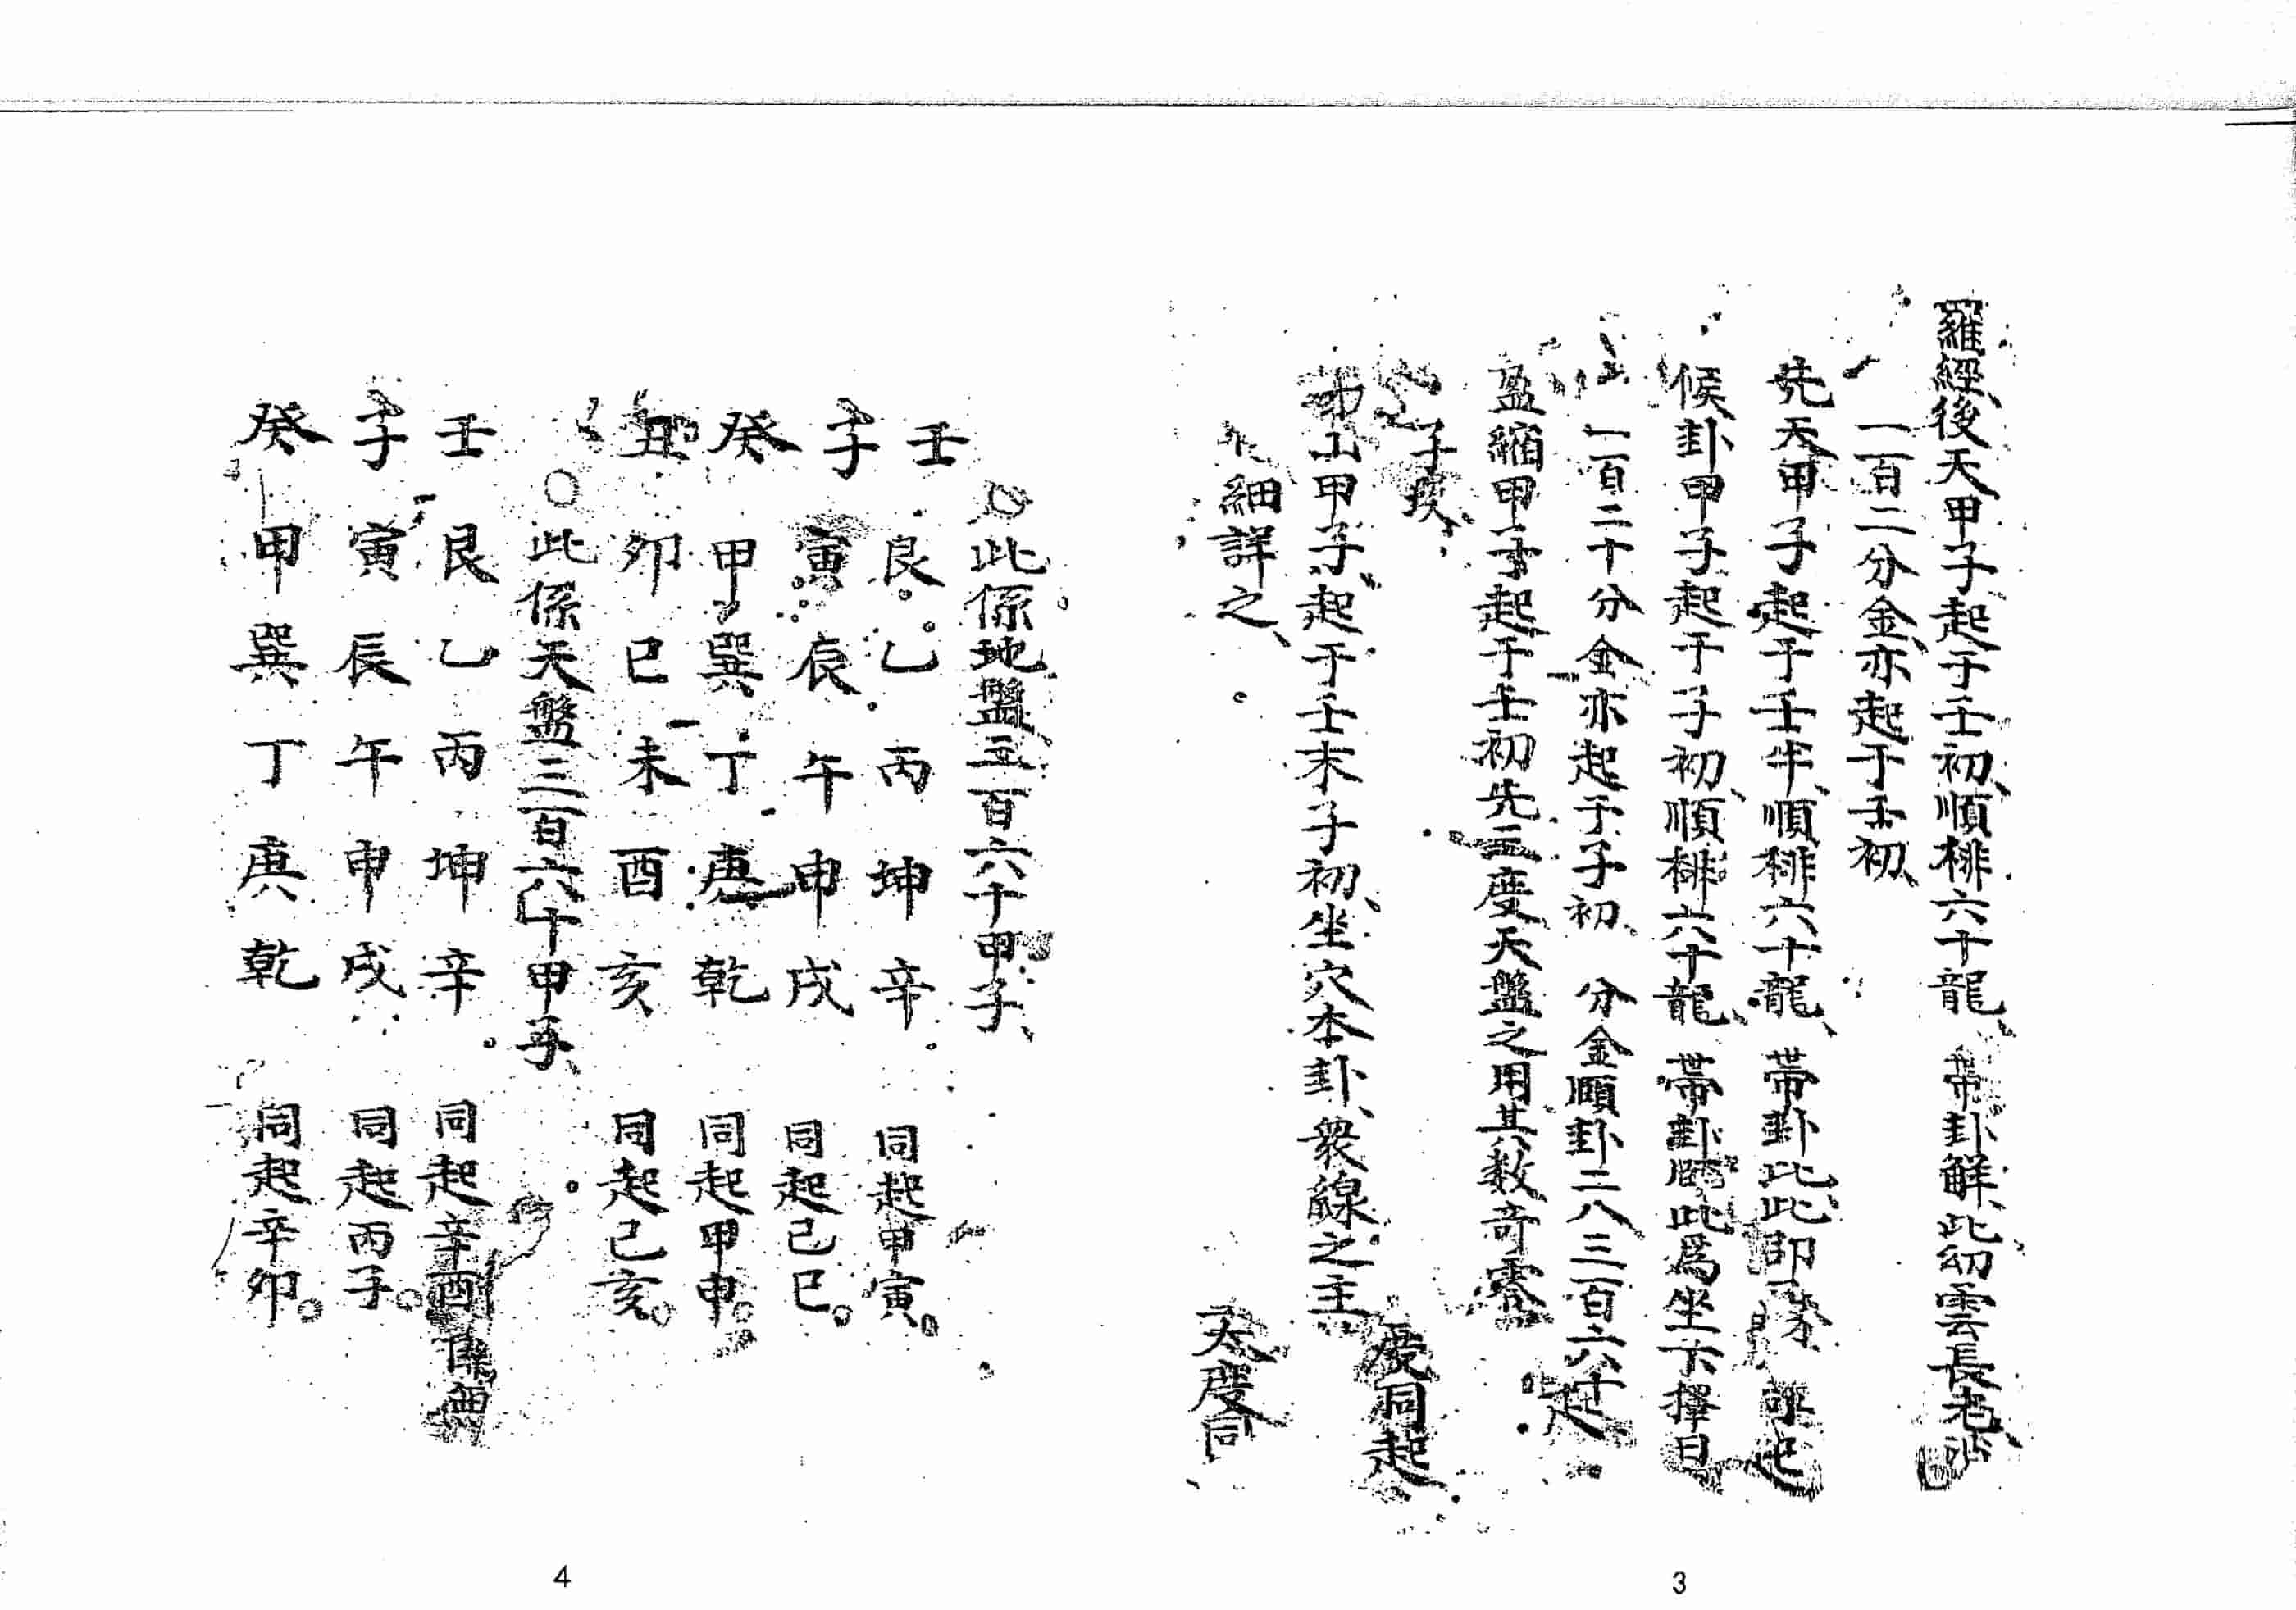 羅經後天甲子起于壬初、順排六十龍、帯卦解、此幻雲長老
一百二分金、亦起于壬初、
先天甲子起于壬半、順排六十龍、帯卦比此即
候卦甲子起于子初、順排六十龍、帯卦 此爲坐下擇日
一百二十分金亦起于子初、分金頤卦二八三百六十起
盈縮甲子起于壬初先三度天盤之用其数奇零
子坎、度同起
山甲子起于壬末子初、坐穴本卦、衆線之主
細詳之、太度同
3
此係地盤三百六十甲子、
壬艮乙丙坤辛 同起甲寅。
子寅辰午申戌 同起己巳。
癸甲巽丁庚乾 同起甲申。
丑卯巳未酉亥 同起己亥。
○此係天盤三百六十甲子、
壬艮乙丙坤辛 同起辛酉
子寅辰午申戌 同起丙子。
癸甲巽丁庚乾 同起辛卯。
4